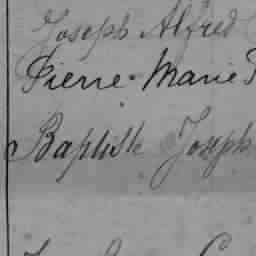 Joseph Alfred
Pierre-Marie
Baptiste Joseph